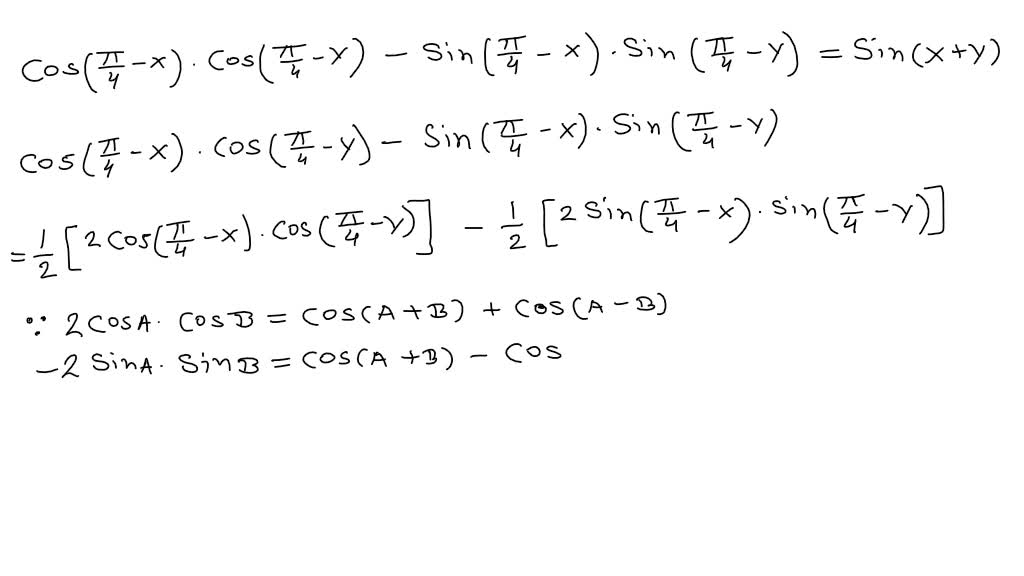 Cos(π/4 - x) · Cos(π/4 - y) - Sin(π/4 - x) · Sin(π/4 - y) = Sin(x+y)
Cos(π/4 - x) · Cos(π/4 - y) - Sin(π/4 - x) · Sin(π/4 - y)
= 1/2 [2 Cos(π/4 - x) · Cos(π/4 - y)] - 1/2 [2 Sin(π/4 - x) · Sin(π/4 - y)]
∵ 2 CosA · CosB = Cos(A+B) + Cos(A-B)
-2 SinA · SinB = Cos(A+B) - Cos